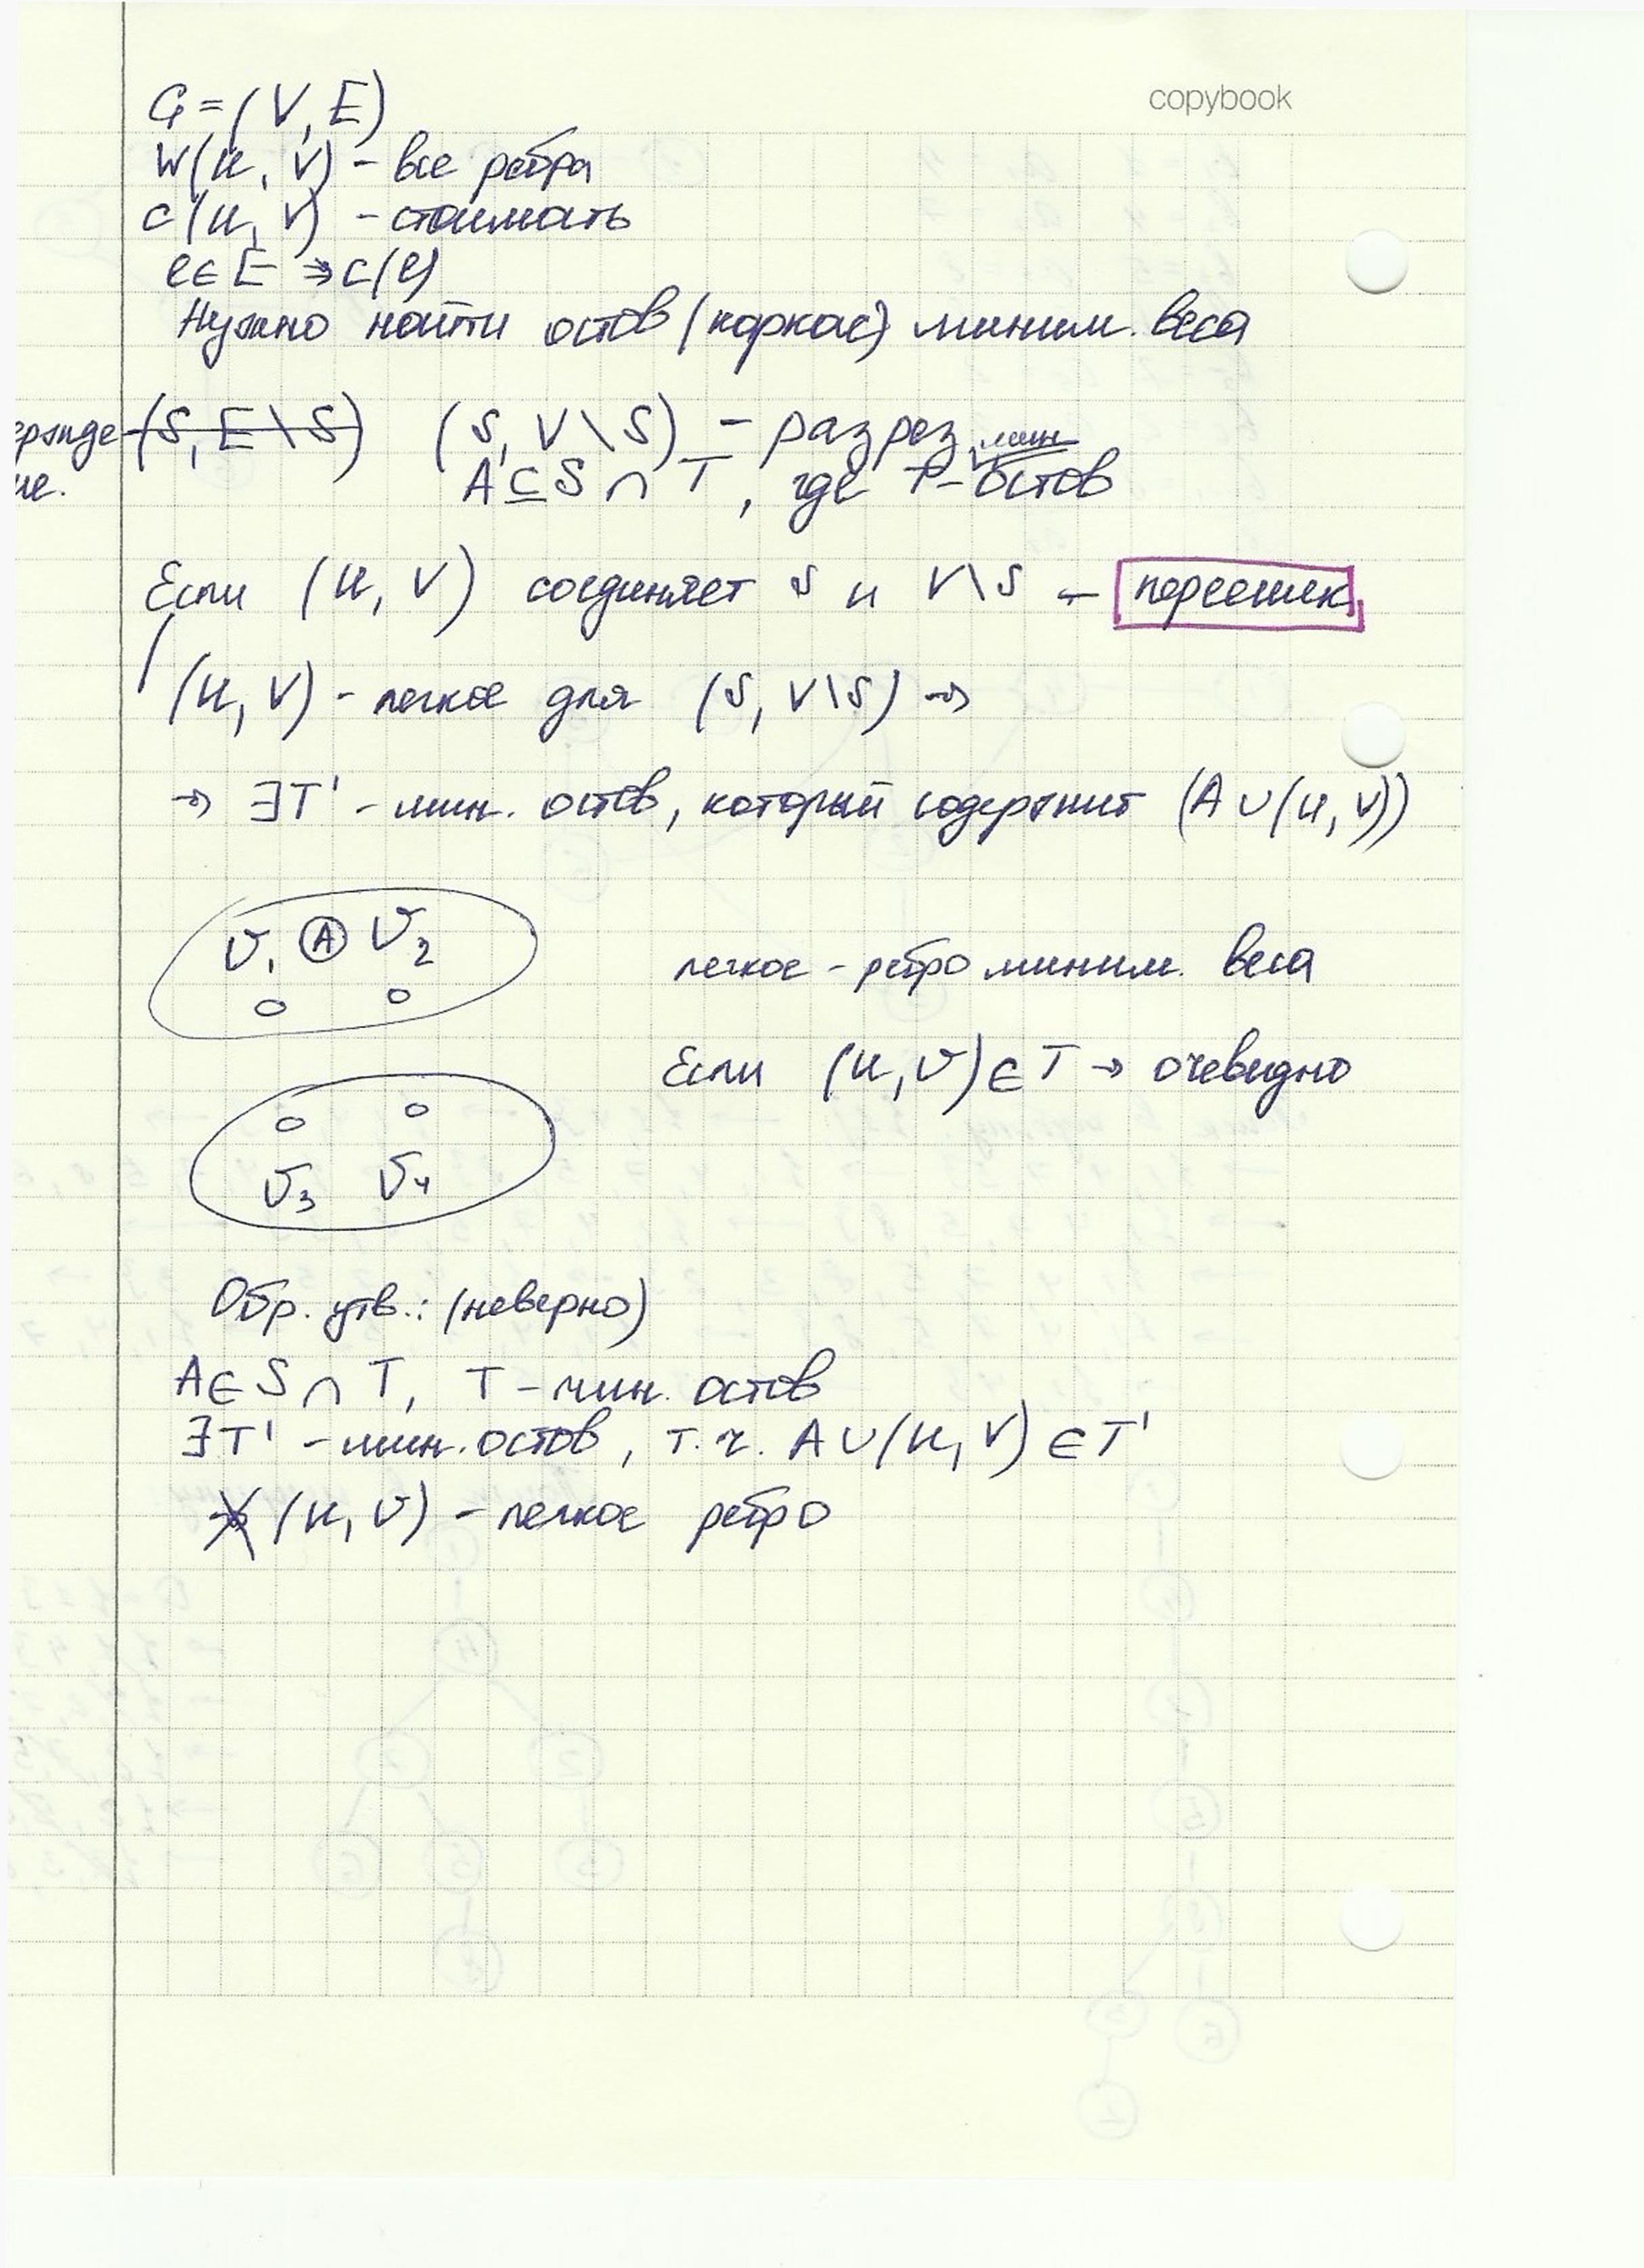 copybook
G = (V, E)
W(u, v) - все ребра
c(u, v) - стоимость
e ∈ E ⇒ c(e)
Нужно найти остов (каркас) миним. веса
(S, E \ S) (S, V \ S) - разрез
мин
A ⊆ S ∩ T, где T - остов
Если (u, v) соединяет S и V \ S -
(u, v) - легкое для (S, V \ S) →
→ ∃T' - мин. остов, который содержит (A ∪ (u, v))
v1 A v2
легкое - ребро миним. веса
Если (u, v) ∈ T → очевидно
v3 v4
Обр. утв.: (неверно)
A ∈ S ∩ T, T - мин. остов
∃T' - мин. остов, т.ч. A ∪ (u, v) ∈ T'
(u, v) - легкое ребро